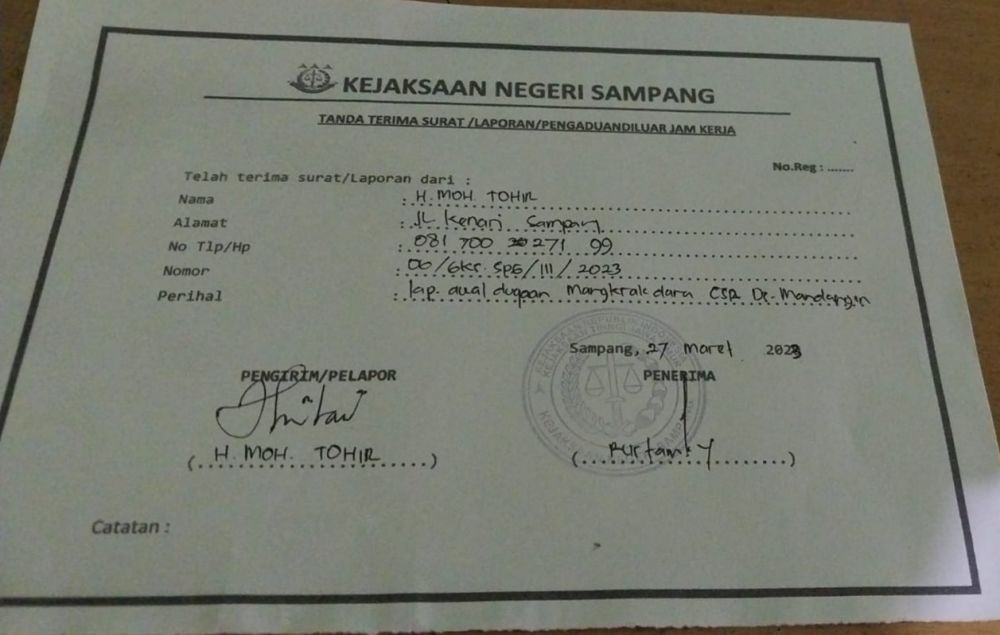 KEJAKSAAN NEGERI SAMPANG
TANDA TERIMA SURAT /LAPORAN/PENGADUANDILUAR JAM KERJA
No.Reg : .......
Telah terima surat/Laporan dari :
Nama : H. MOH. TOHIR
Alamat : JL Kenari Sampang
No Tlp/Hp : 081 700 271 99
Nomor : 06/Gkr. SPG/III/2023
Perihal : lap. dugaan Mangkrak dana CSR Ds. Mandangin
Sampang, 27 Maret 2023
PENGIRIM/PELAPOR
PENERIMA
(H. MOH. TOHIR)
KEJAKSAAN REPUBLIK INDONESIA
KEJAKSAAN TINGGI JAWA TIMUR
Catatan :